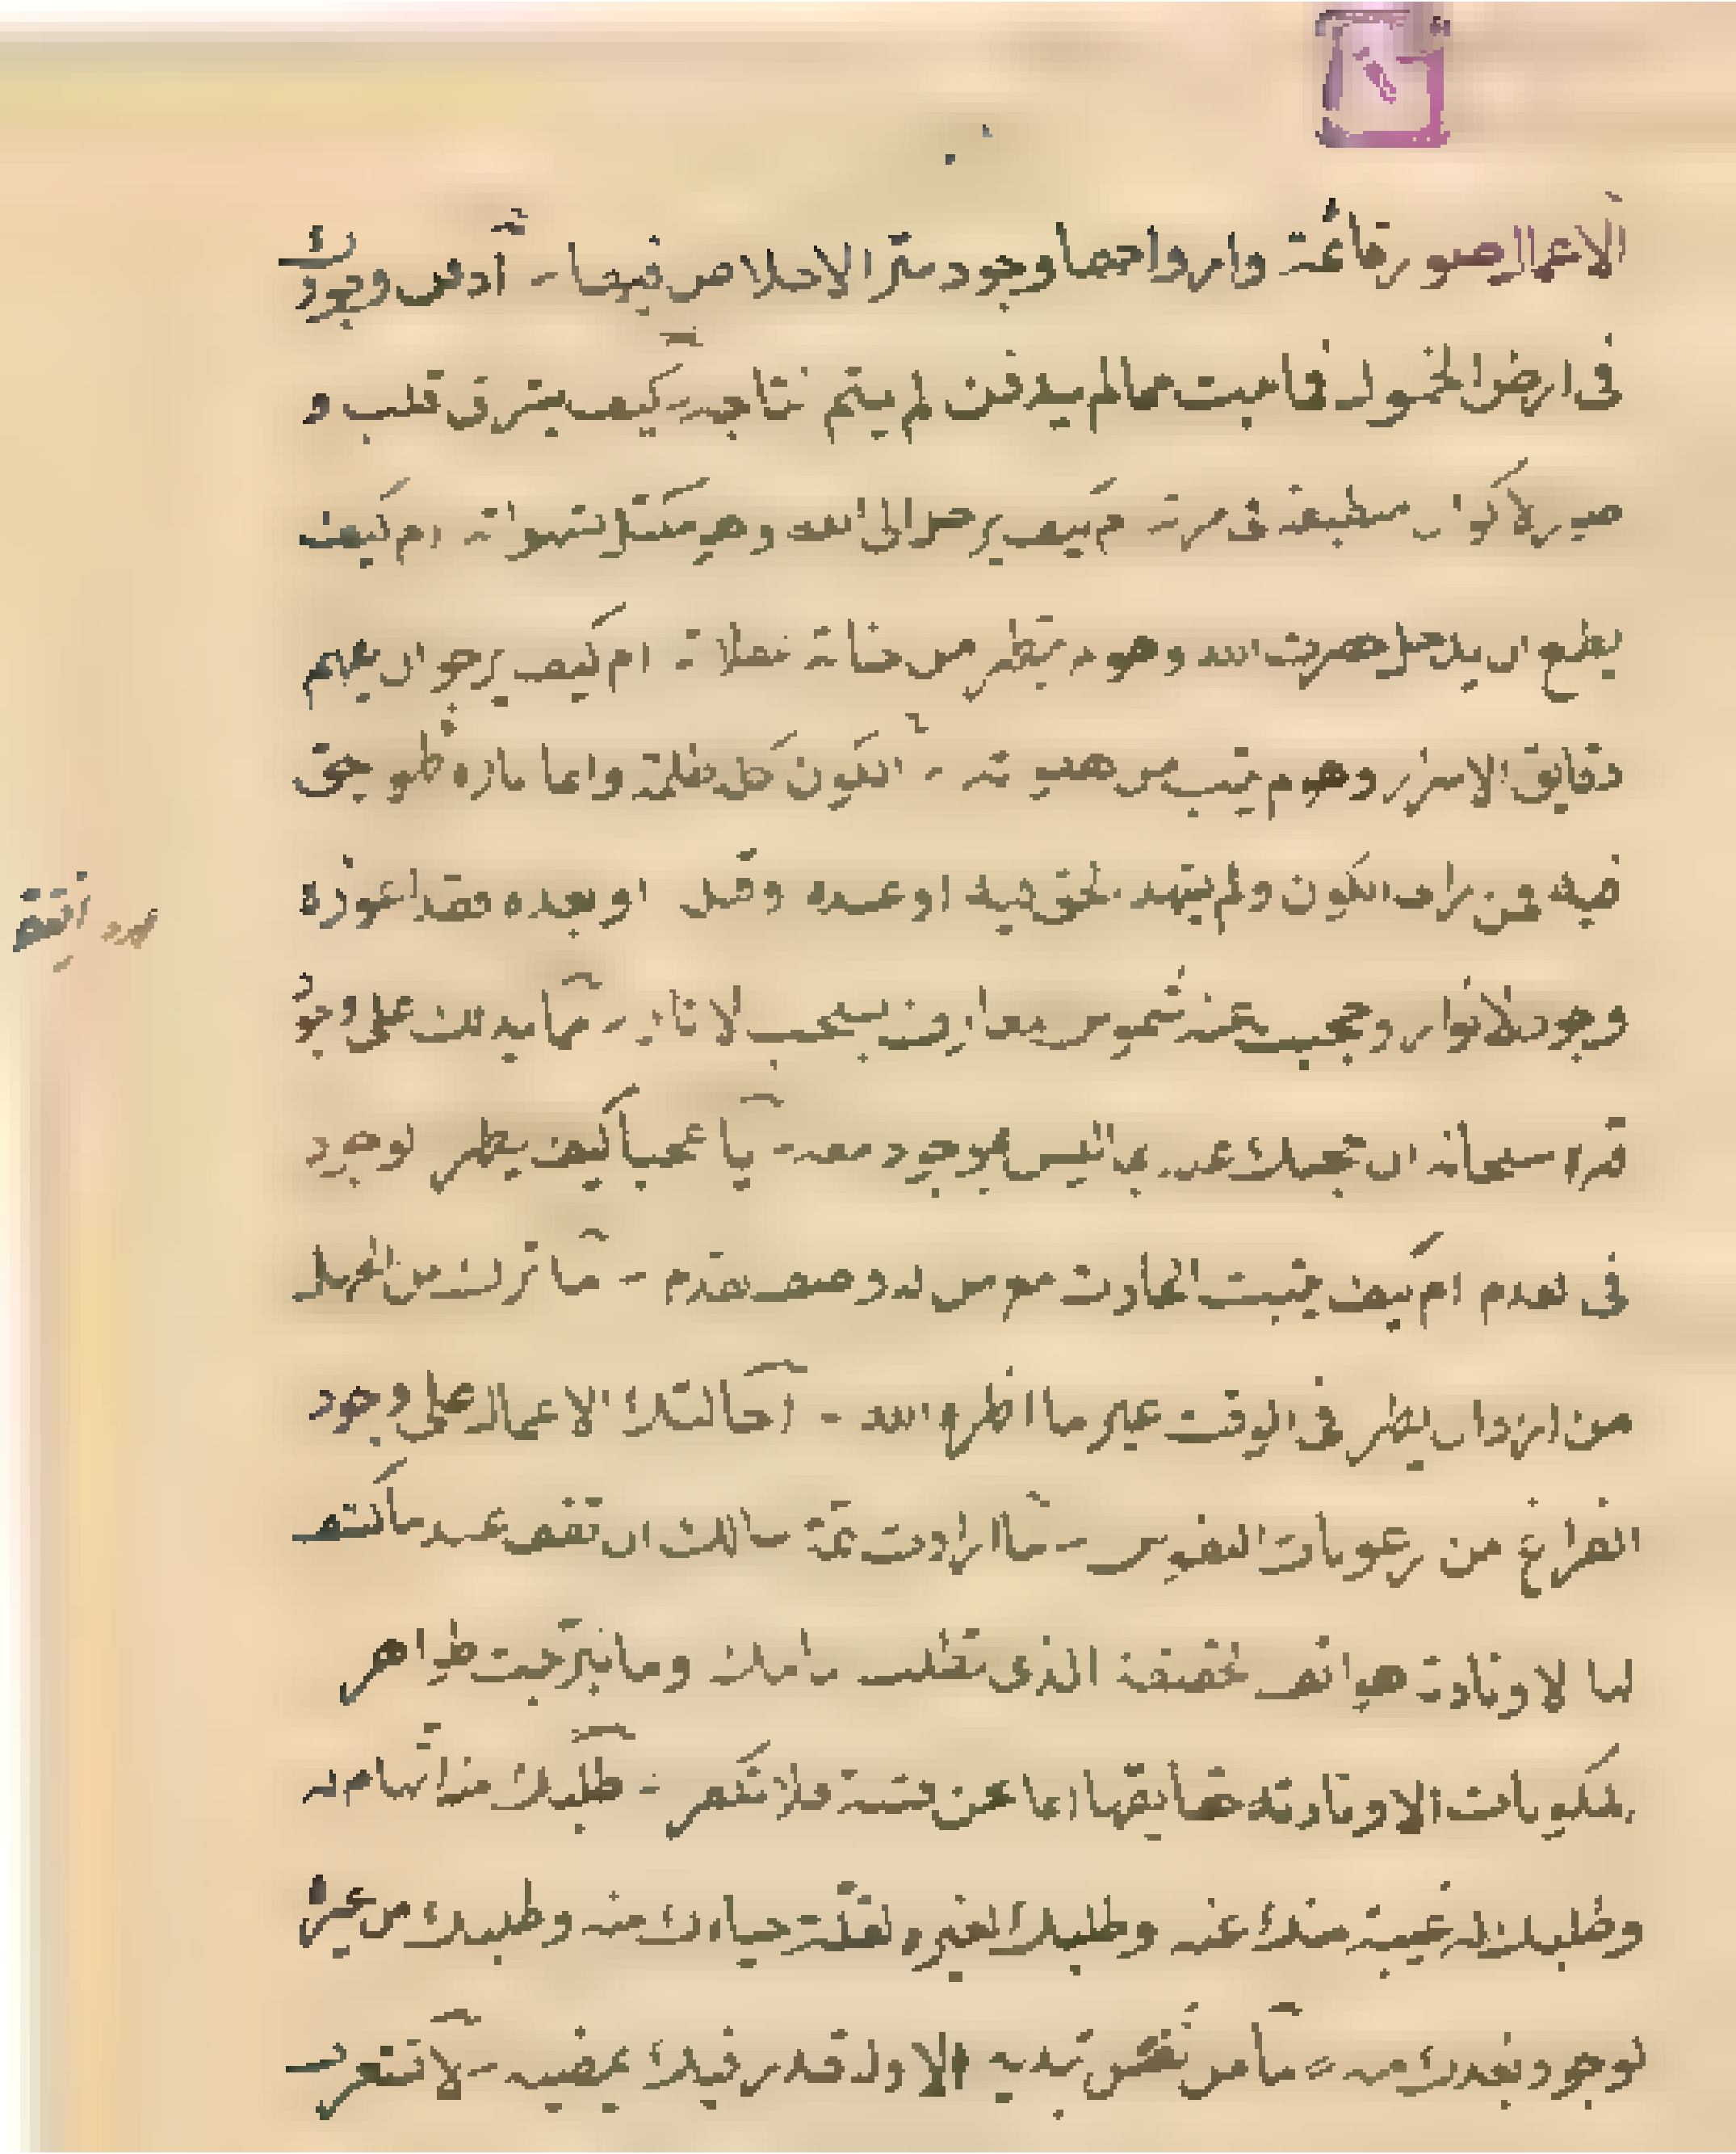 الاعمال صور قائمة وارواحها وجود سر الاخلاص فيها - ادفن وجودك
فى ارض الخمول فما نبت مما لم يدفن لم يتم نتاجه - كيف يشرق قلب و
صور الاكوان منطبعة فى مرآته ام كيف يرحل الى الله وهو مكبل بشهواته ام كيف
يطمع ان يدخل حضرت الله وهو لم يتطهر من جنابة غفلاته ام كيف يرجو ان يفهم
دقايق الاسرار وهو لم يتب من هفواته - الكون كله ظلمة وانما اناره ظهور الحق
فيه فمن راى الكون ولم يشهد الحق فيه او عنده وقبله او بعده فقد اعوزه
وجود الانوار وحجبت عنه شموس المعارف بسحب الاثار - مما يدلك على وجود
قهره سبحانه ان حجبك عنه بما ليس بموجود معه - يا عجبا كيف يظهر الوجود
فى العدم ام كيف يثبت الحادث مع من له وصف القدم - ما ترك من الجهل
من اراد ان يظهر فى الوقت غير ما اظهره الله - احالتك الاعمال على وجود
الفراغ من رعونات النفوس - ما ارادت همة سالك ان تقف عند ما كشف
لها الا ونادت هواتف الحقيقة الذى تطلب امامك وما تبرجت ظواهر
المكونات الا ونادته حقايقها انما نحن فتنة فلا تكفر - طلبك منه اتهام له
وطلبك له غيبة منك عنه وطلبك لغيره لقلة حياءك منه وطلبك من غيره
لوجود بعدك عنه - ما من نفس تبديه الا وله قدر فيك يمضيه - لا تترقب